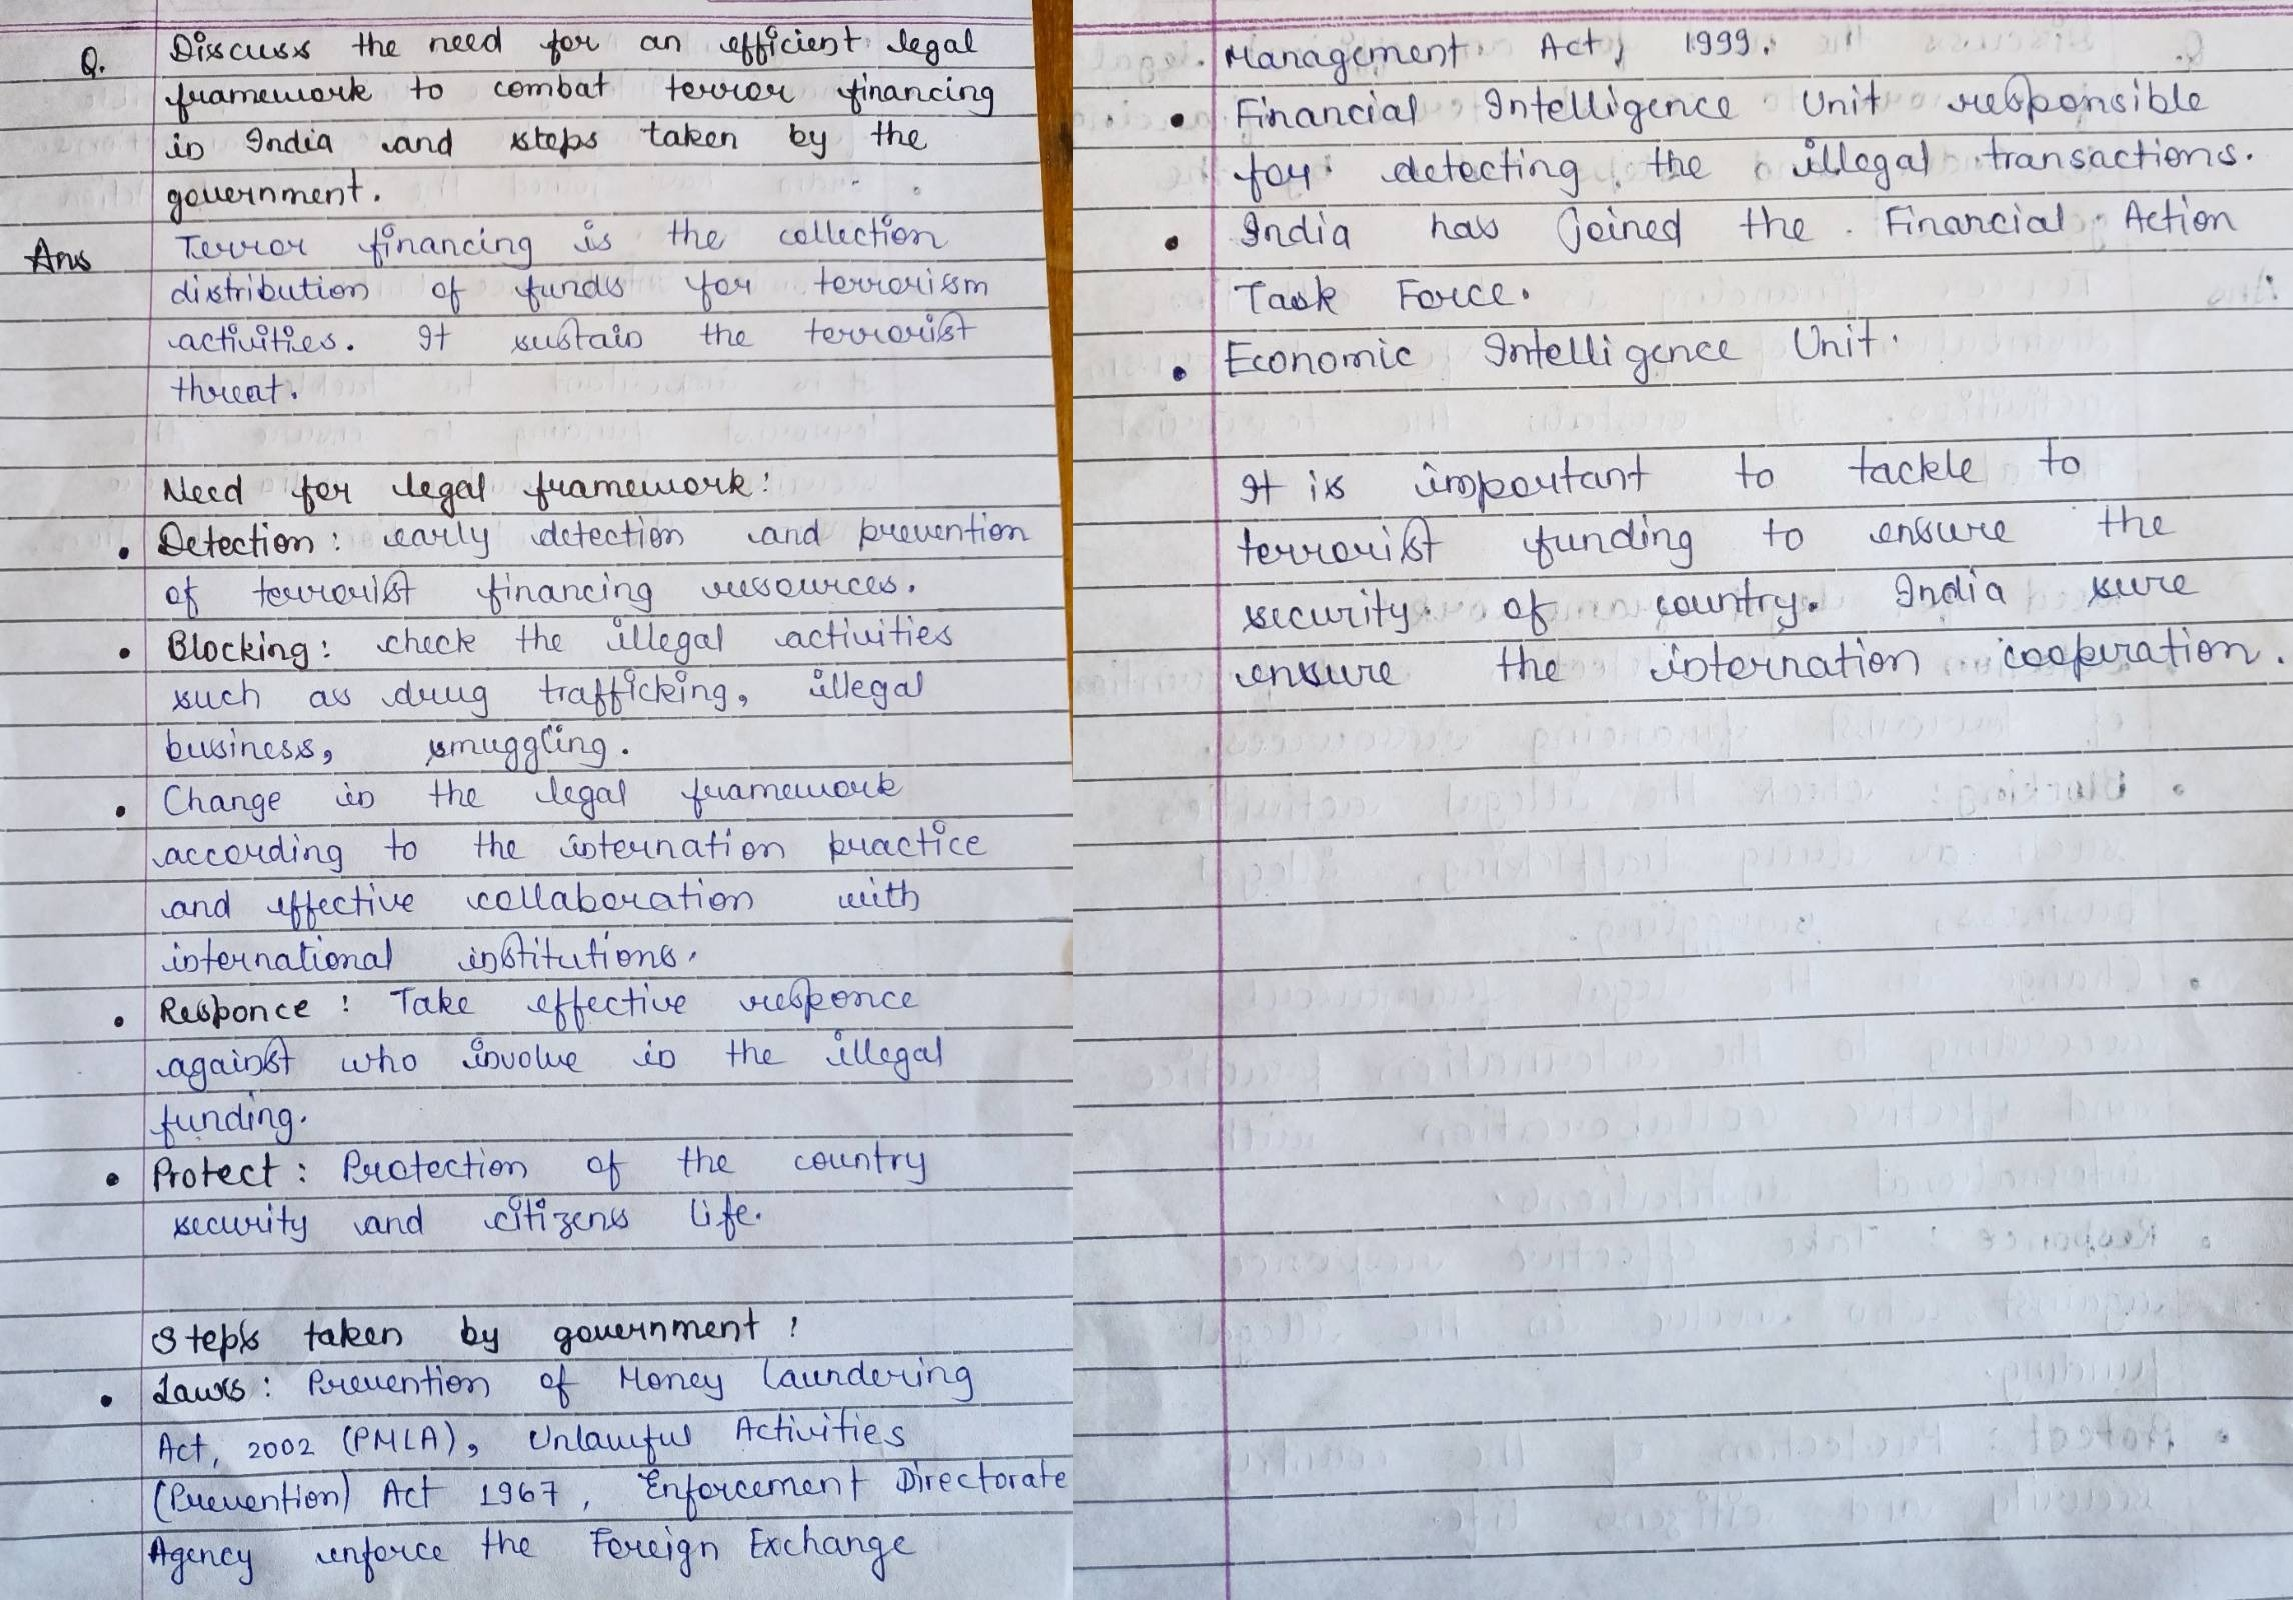 Q. Discuss the need for an efficient legal
framework to combat terror financing
in India and steps taken by the
government.
Ans Terror financing is the collection
distribution of funds for terrorism
activities. It sustain the terrorist
threat.
Need for legal framework:
• Detection: early detection and prevention
of terrorist financing resources.
• Blocking: check the illegal activities
such as drug trafficking, illegal
business, smuggling.
• Change in the legal framework
according to the internation practice
and effective collaboration with
international institutions.
• Responce: Take effective responce
against who involve in the illegal
funding.
• Protect: Protection of the country
security and citizens life.
Steps taken by government:
• Laws: Prevention of Money Laundering
Act, 2002 (PMLA), Unlawful Activities
(Prevention) Act 1967, Enforcement Directorate
Agency enforce the Foreign Exchange
Management Act, 1999.
• Financial Intelligence Unit responsible
for detecting the illegal transactions.
• India has joined the Financial Action
Task Force.
• Economic Intelligence Unit.
It is important to tackle to
terrorist funding to ensure the
security of country. India sure
ensure the internation cooperation.